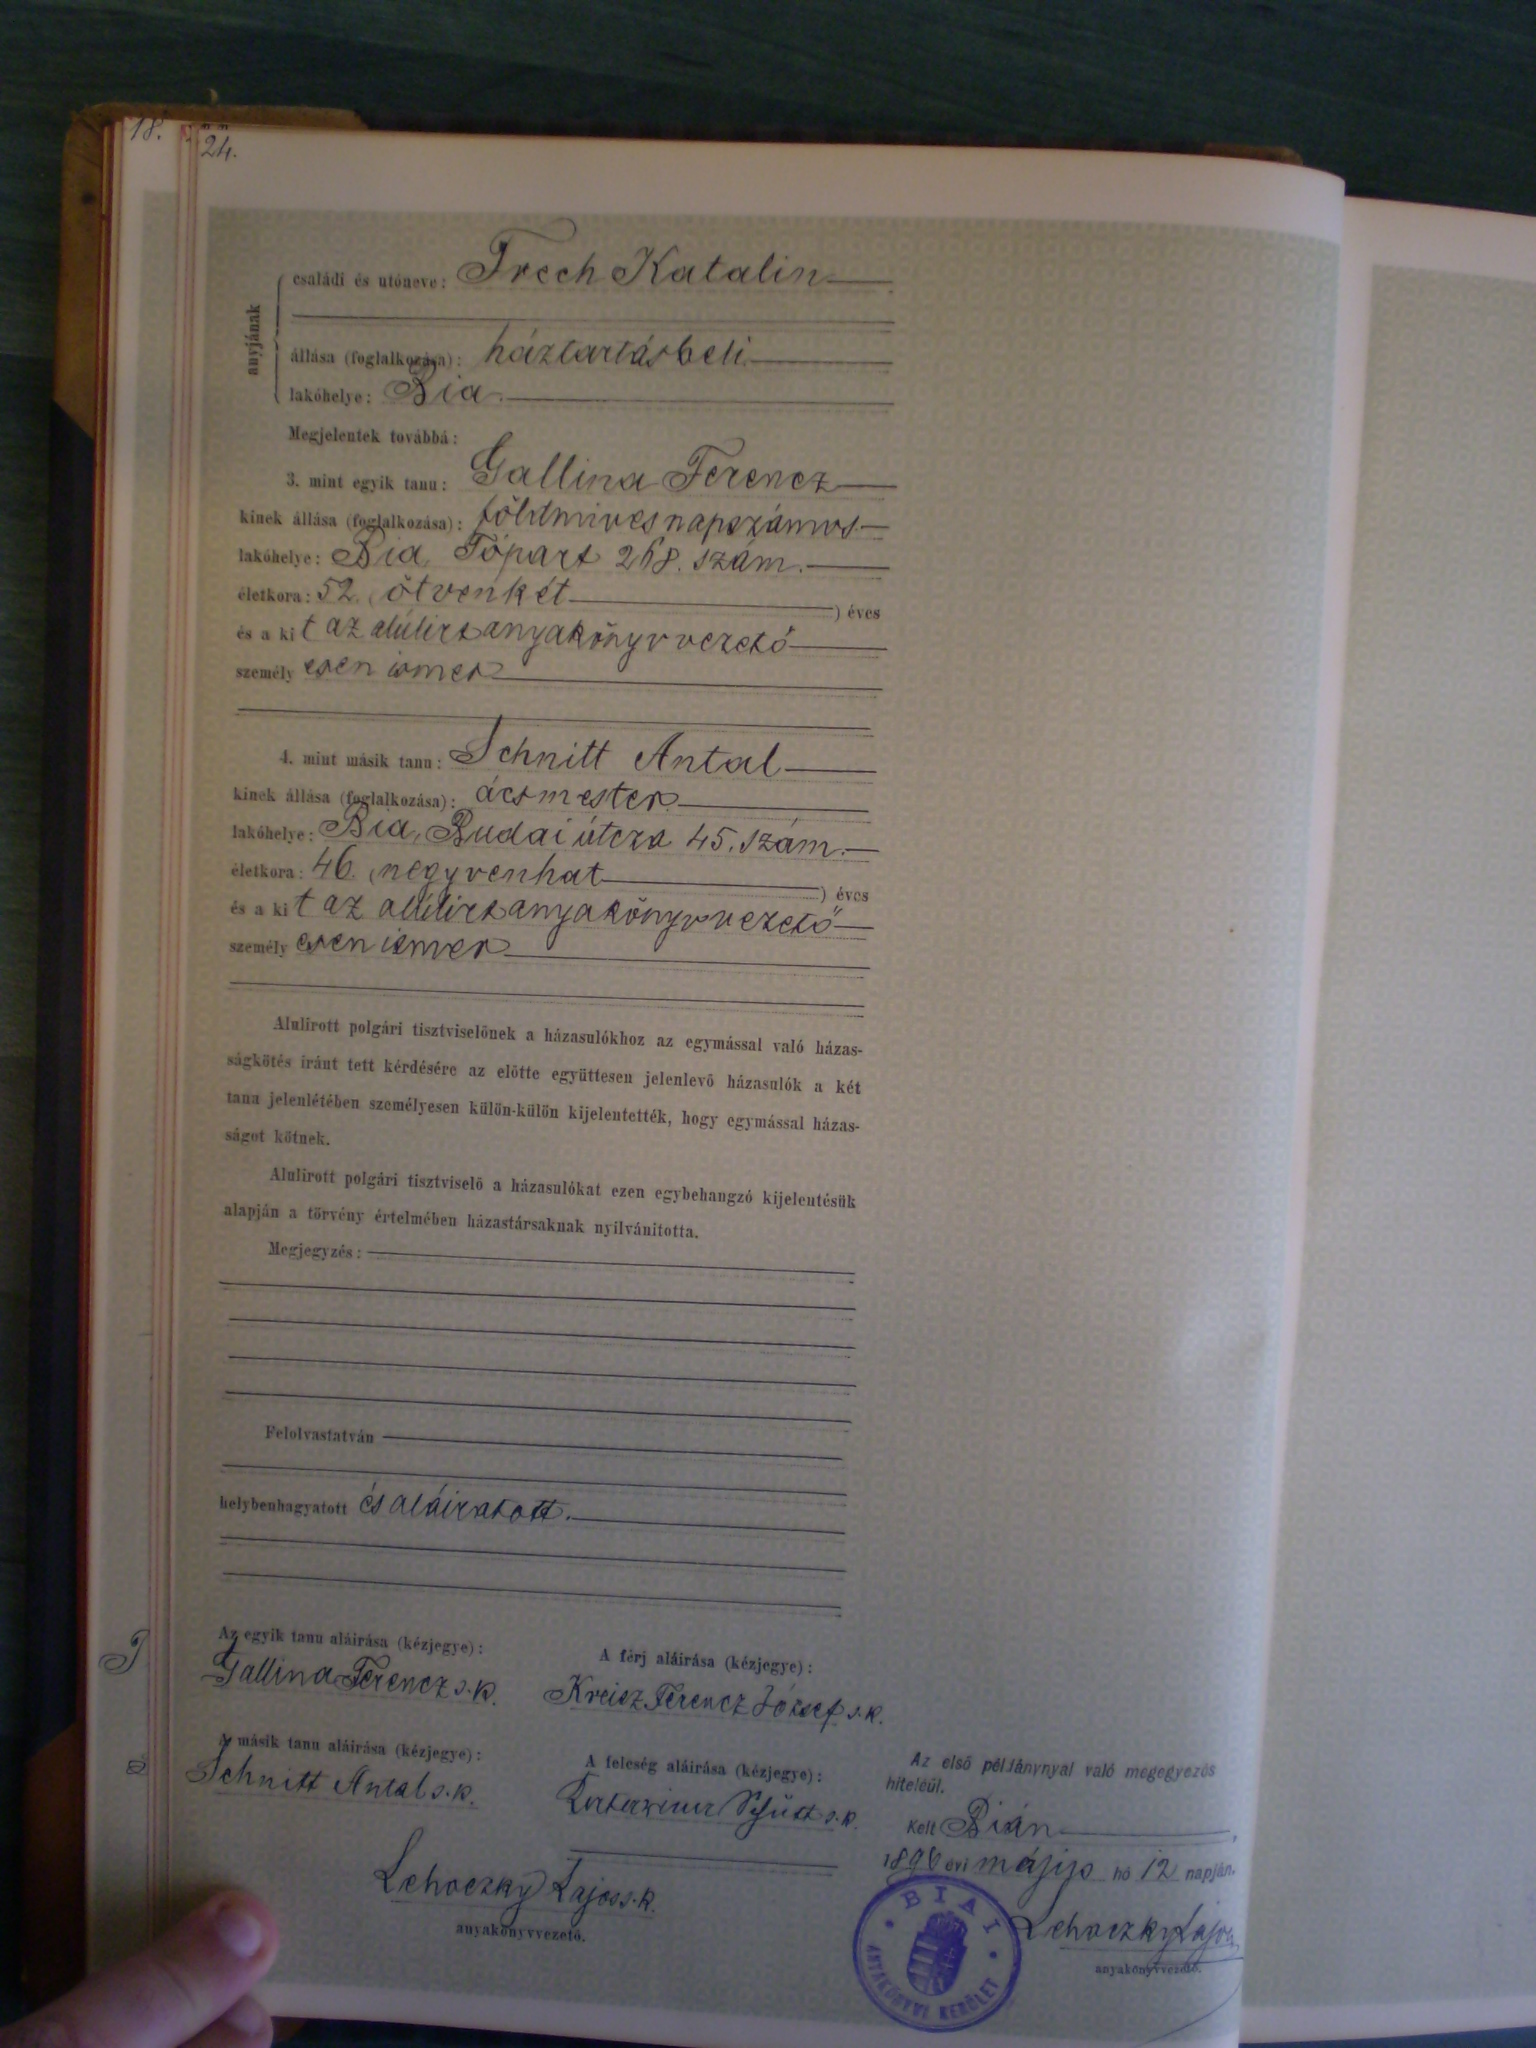 18.
24.
anyjának
családi és utóneve: Trech Katalin
állása (foglalkozása): háztartásbeli
lakóhelye: Bia.
Megjelentek továbbá:
3. mint egyik tanu: Gallina Ferencz
kinek állása (foglalkozása): földmives napszámos
lakóhelye: Bia, Tópart 268. szám.
életkora: 52. (ötvenkét ) éves
és a kit az alúlirt anyakönyvvezető
személyesen ismer
4. mint másik tanu: Schnitt Antal
kinek állása (foglalkozása): ácsmester
lakóhelye: Bia, Budai útcza 45. szám.
életkora: 46. (negyvenhat ) éves
és a kit az alúlirt anyakönyvvezető
személyesen ismer
Alulirott polgári tisztviselőnek a házasulókhoz az egymással való házas-
ságkötés iránt tett kérdésére az előtte együttesen jelenlevő házasulók a két
tanu jelenlétében személyesen külön-külön kijelentették, hogy egymással házas-
ságot kötnek.
Alulirott polgári tisztviselő a házasulókat ezen egybehangzó kijelentésük
alapján a törvény értelmében házastársaknak nyilvánitotta.
Megjegyzés:
Felolvastatván
helybenhagyatott és aláiratott.
Az egyik tanu aláirása (kézjegye):
Gallina Ferencz s. k.
A férj aláirása (kézjegye):
Kreisz Ferencz József s. k.
A másik tanu aláirása (kézjegye):
Schnitt Antal s. k.
A feleség aláirása (kézjegye):
Katarina Schütt s. k.
Lehoczky Lajos s. k.
anyakönyvvezető.
Az első példánynyal való megegyezés
hiteléül.
Kelt Bián,
1896 évi május hó 12 napján.
Lehoczky Lajos
anyakönyvvezető.
BIAI
ANYAKÖNYVI KERÜLET